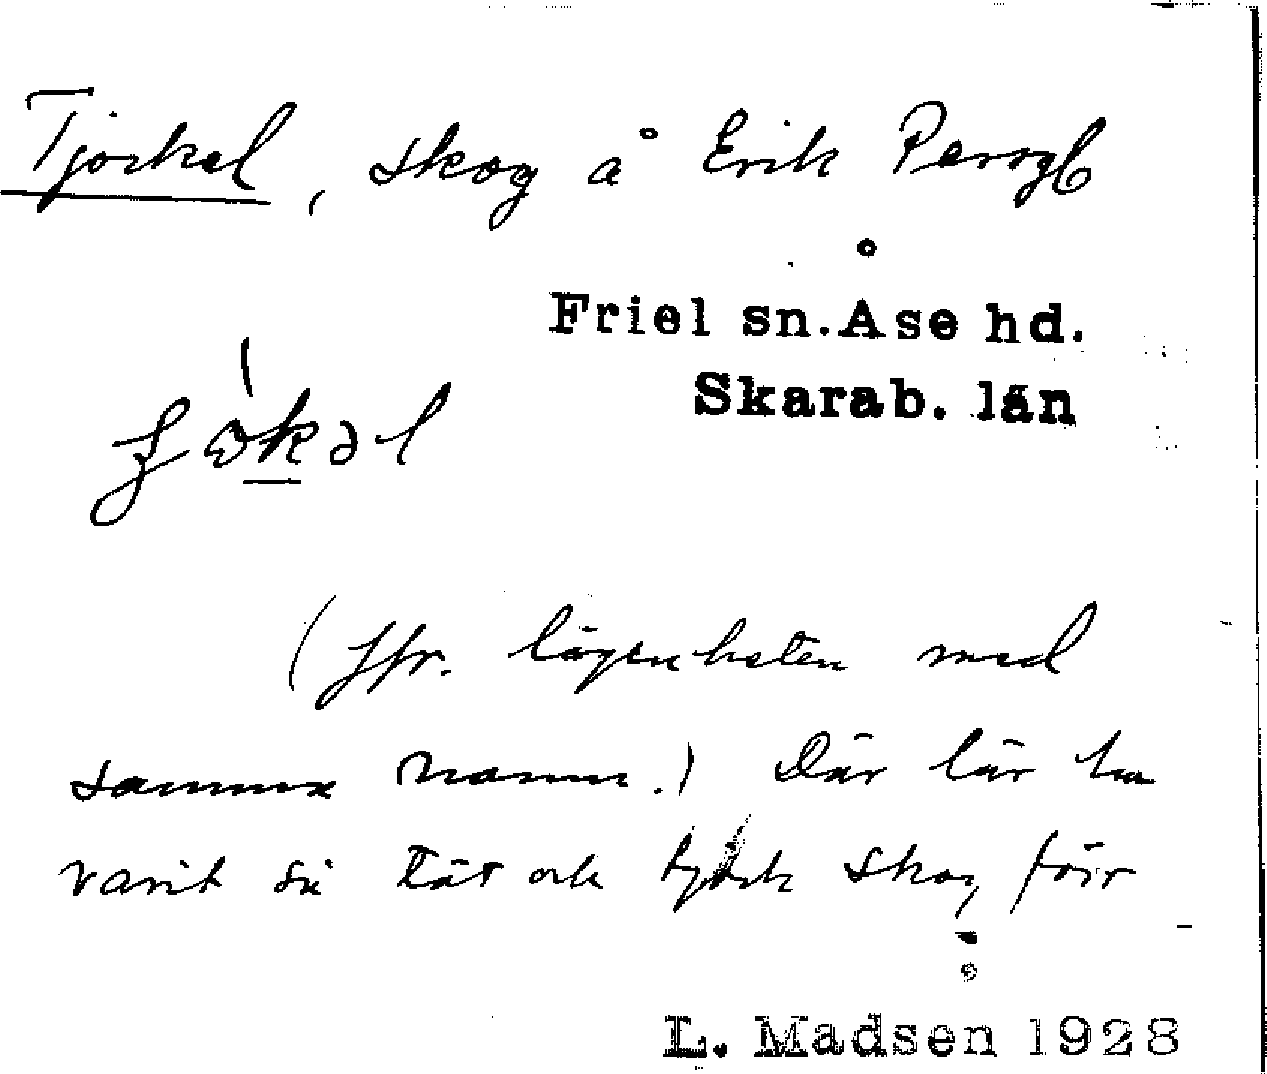 Tjorkel, skog å Erik Persgb
Friel sn. Åse hd.
Skarab. län
(Jfr. lägenheten med
samma namn.) Där lär ha
varit så tät och tjock skog förr
L. Madsen 1928